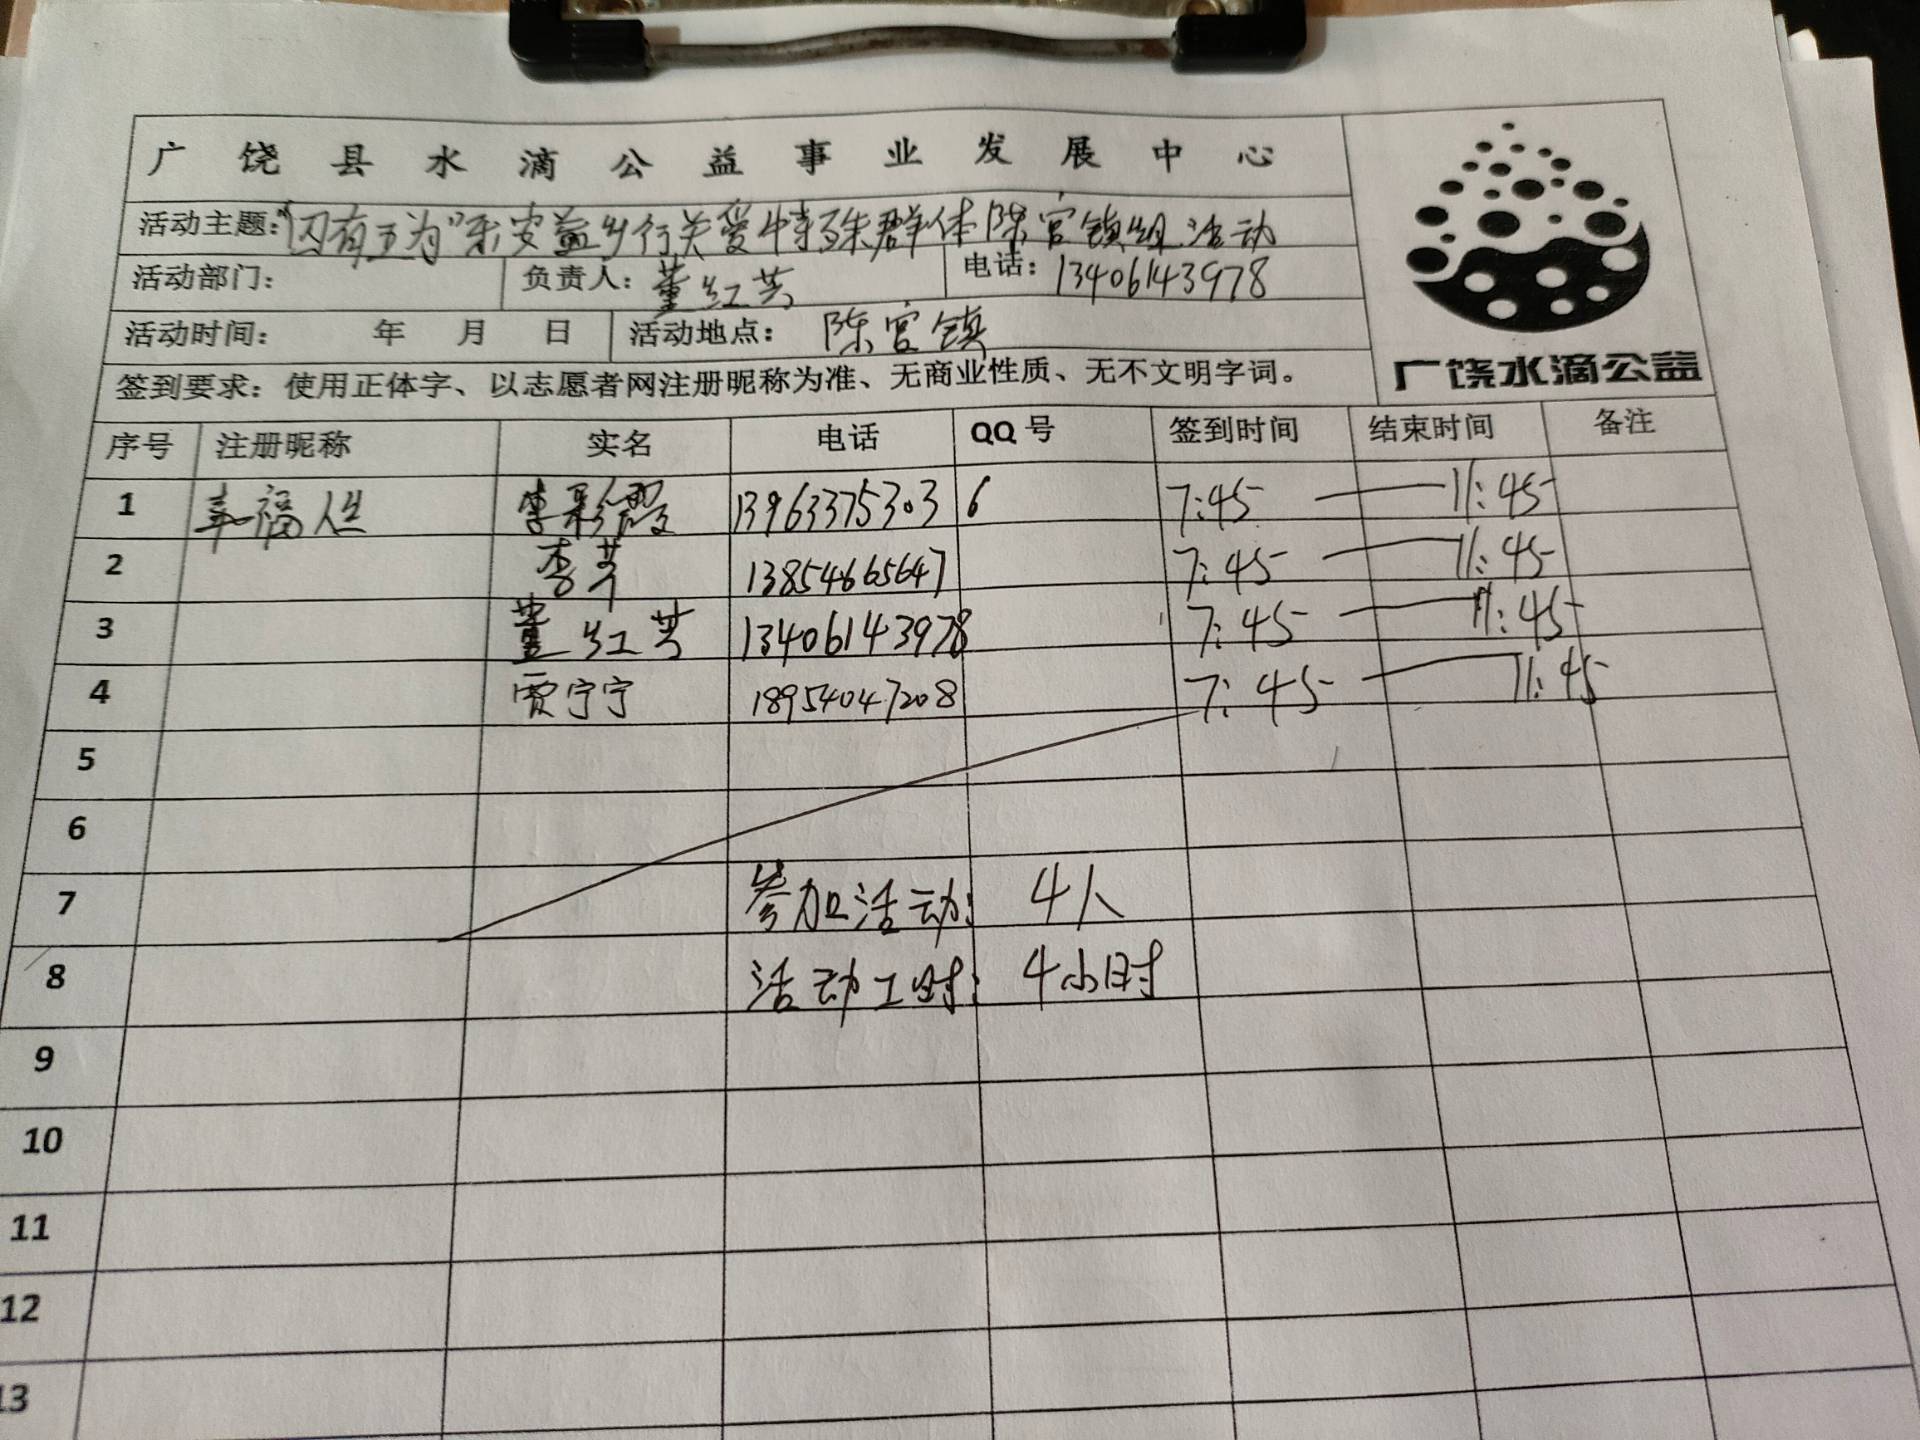 广饶县水滴公益事业发展中心
活动主题："囚有五为"乐安益乡行关爱特殊群体陈官镇组活动
活动部门： 负责人：董红芸 电话：13406143978
活动时间： 年 月 日 活动地点：陈官镇
签到要求：使用正体字、以志愿者网注册昵称为准、无商业性质、无不文明字词。
广饶水滴公益
序号 注册昵称 实名 电话 QQ号 签到时间 结束时间 备注
1 幸福人生 李彩霞 13963375303 6 7:45 — 11:45
2 李芹 13854665647 7:45 — 11:45
3 董红芸 13406143978 7:45 — 11:45
4 贾宁宁 18954047208 7:45 — 11:45
5
6
7 参加活动： 4人
8 活动工时： 4小时
9
10
11
12
13